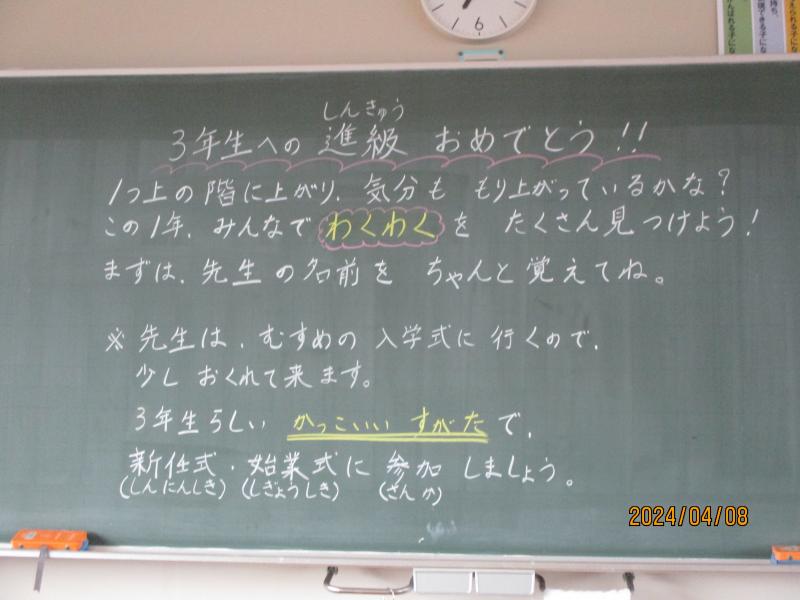 6
しんきゅう
3年生への 進級 おめでとう!!
1つ上の階に上がり、気分も もり上がっているかな?
この1年、みんなで わくわく を たくさん見つけよう!
まずは、先生の名前を ちゃんと覚えてね。
※ 先生は、むすめの 入学式に 行くので、
少し おくれて来ます。
3年生らしい かっこいい すがた で、
新任式・始業式に 参加 しましょう。
(しんにんしき) (しぎょうしき) (さんか)
2024/04/08